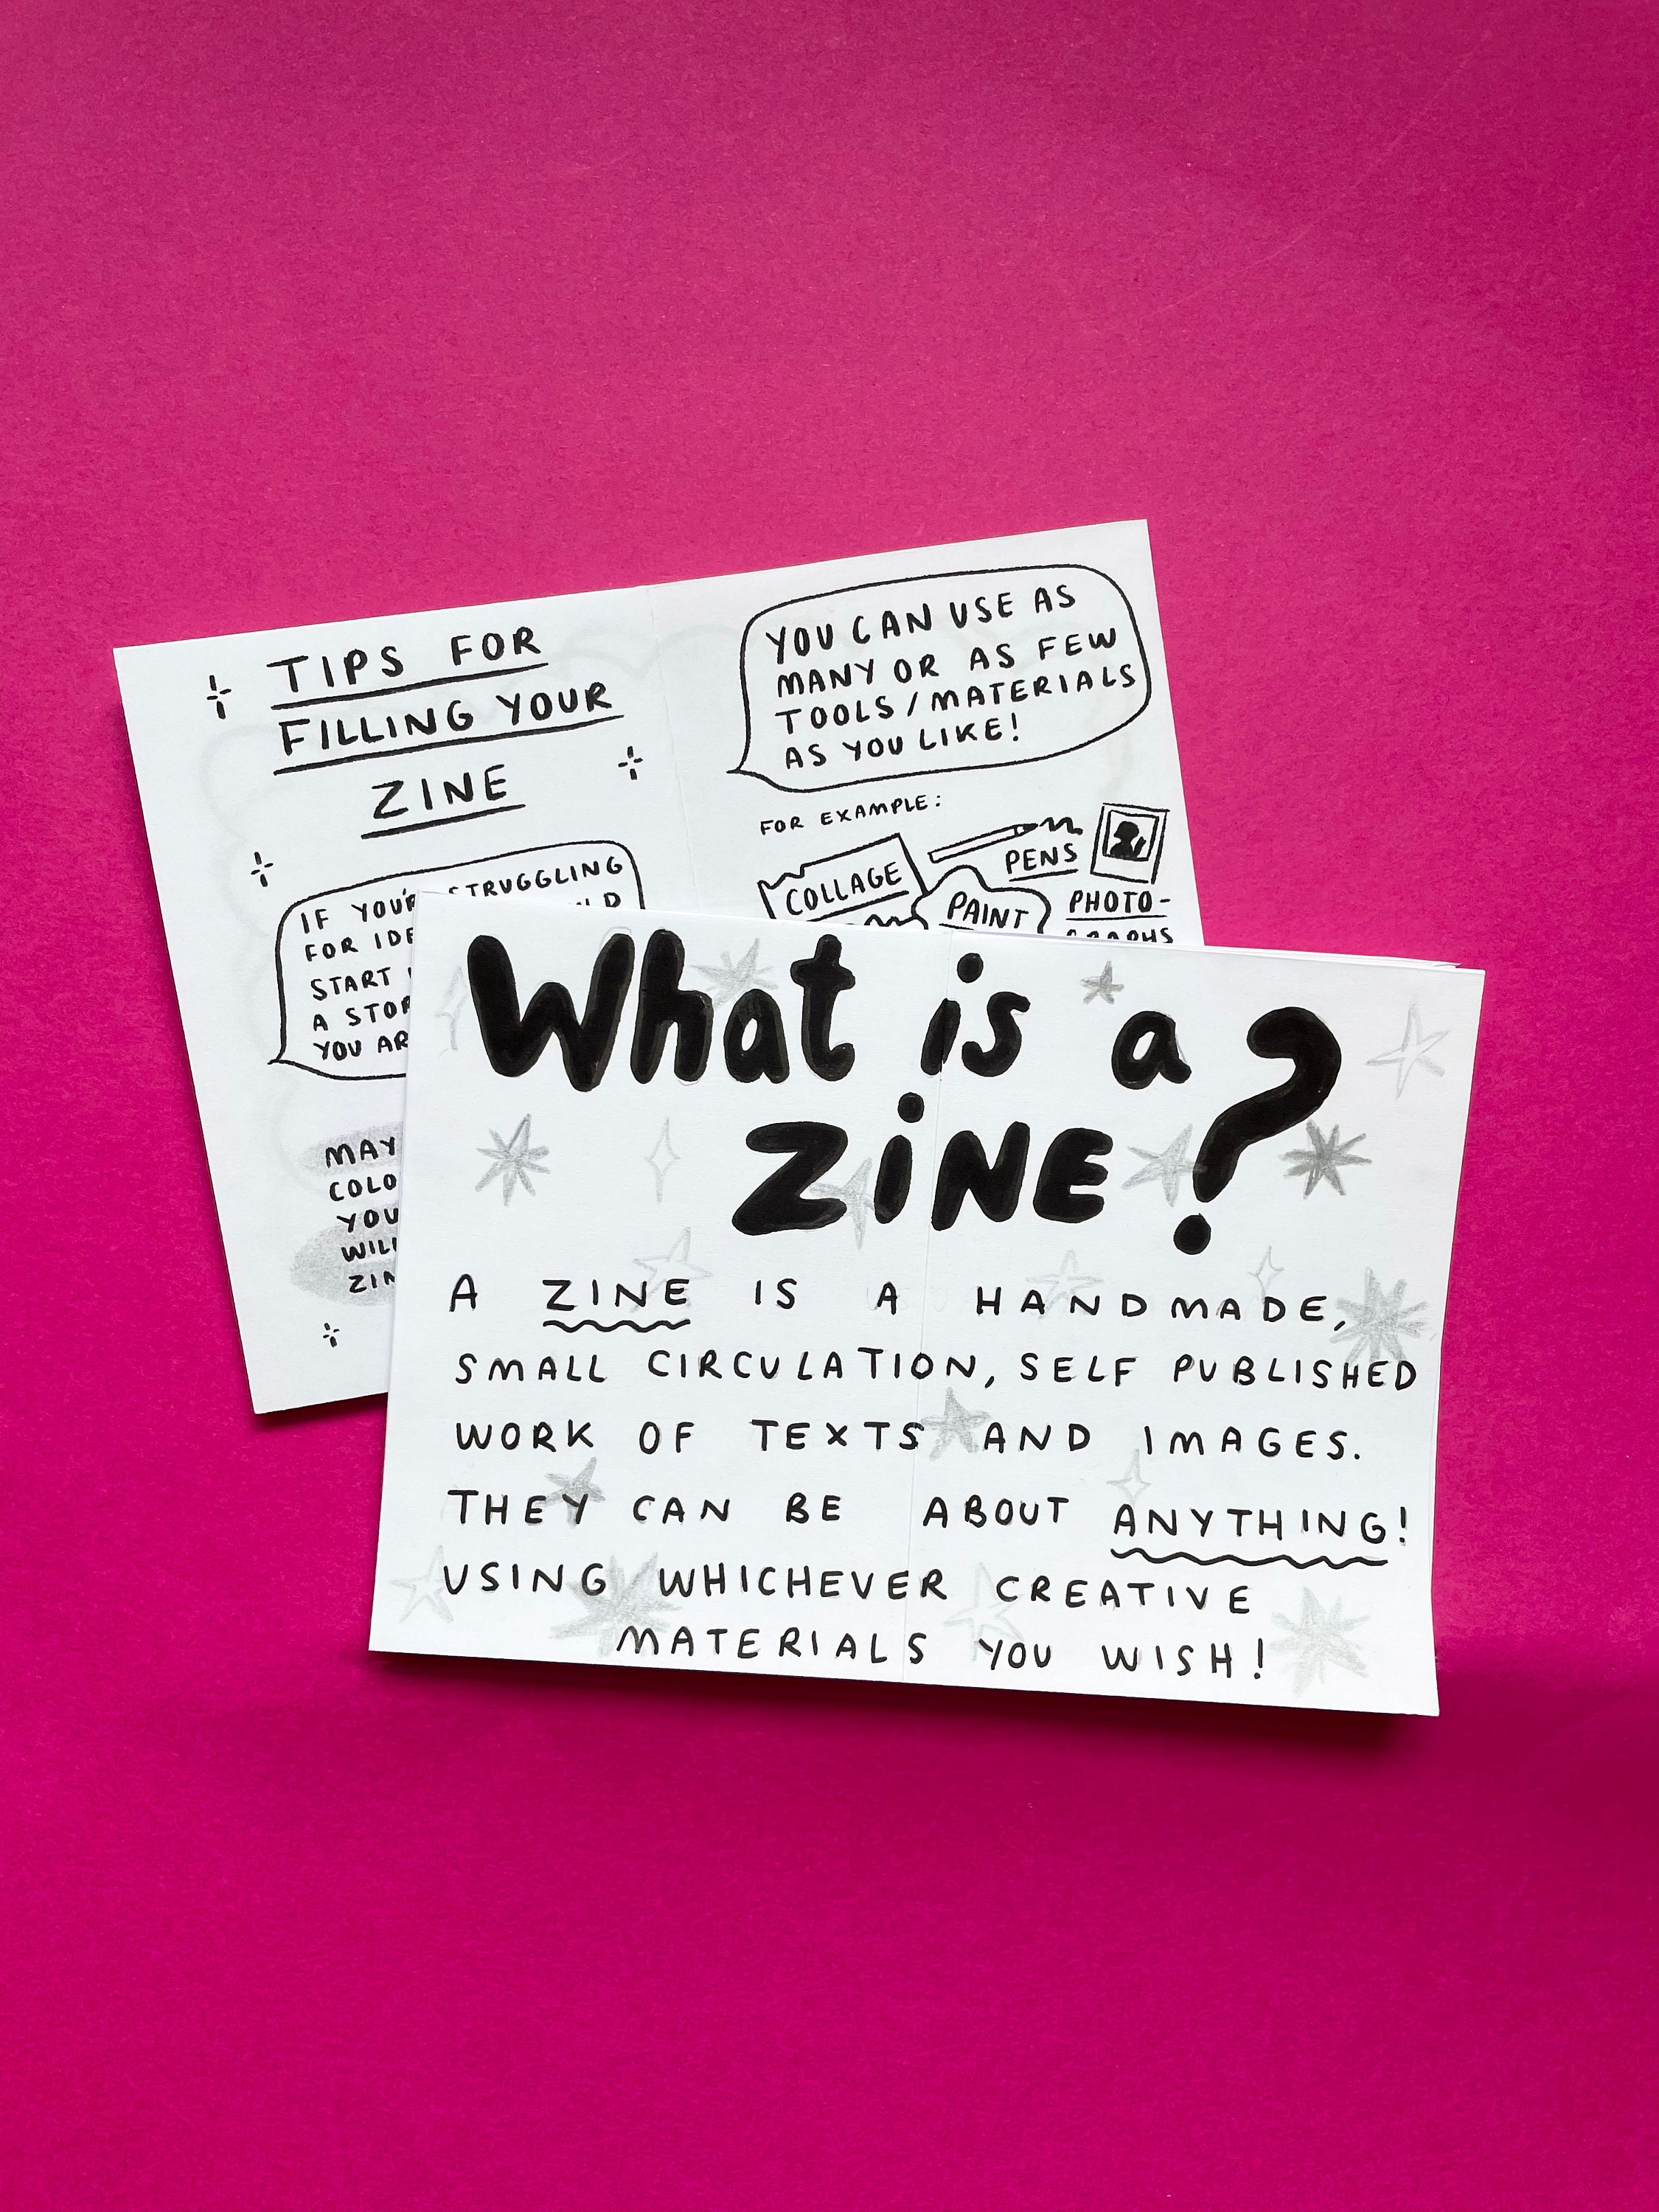 TIPS FOR
FILLING YOUR
ZINE
IF STRUGGLING
FOR
START
A
YOU
YOU CAN USE AS
MANY OR AS FEW
TOOLS/MATERIALS
AS YOU LIKE!
FOR EXAMPLE:
COLLAGE
PENS
PAINT
PHOTO-
What is a
ZiNE?
A ZINE IS A HANDMADE,
SMALL CIRCULATION, SELF PUBLISHED
WORK OF TEXTS AND IMAGES.
THEY CAN BE ABOUT ANYTHING!
USING WHICHEVER CREATIVE
MATERIALS YOU WISH!